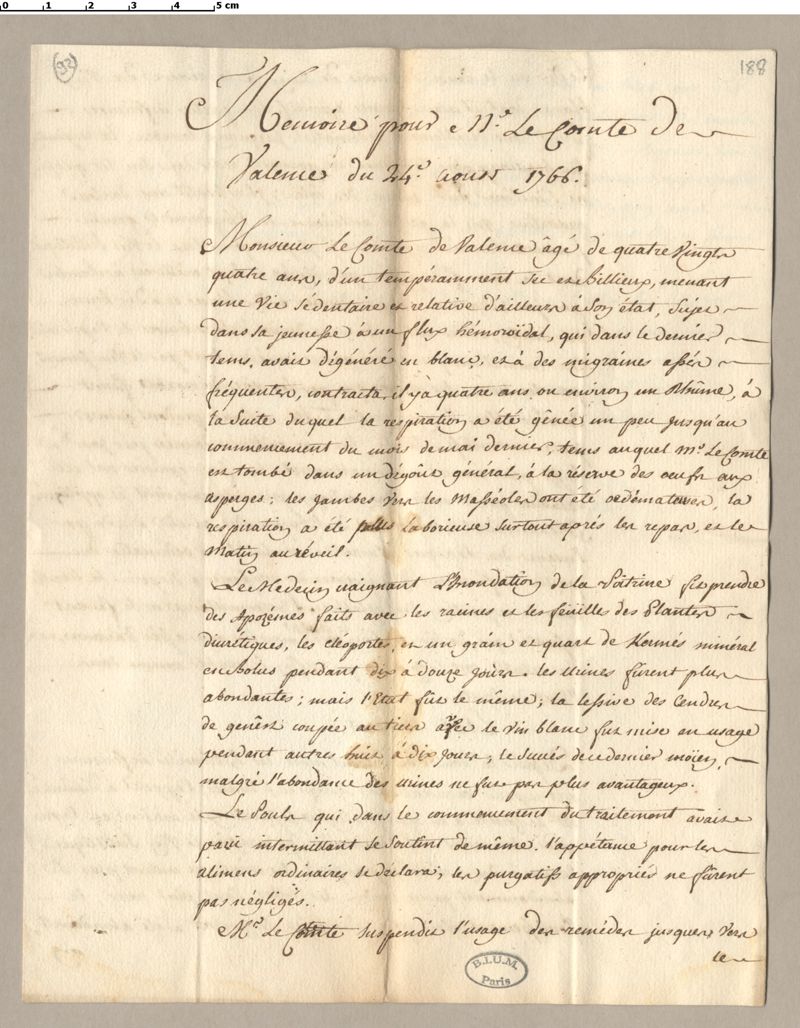 0 1 2 3 4 5 cm
(92)
188
Memoire pour Mr. Le Comte de
Valence du 24e. aoust 1766.
Monsieur Le Comte de Valence âgé de quatre vingts
quatre ans, d'un tempéramment sec et Billieux, menant
une vie sédentaire et relative d'ailleurs à son état, sujet
dans sa jeunesse à un flux hémoroïdal, qui dans le dernier
tems, avait dégénéré en blanc, et à des migraines assés
fréquentes, contracta, il y a quatre ans ou environ un Rhûme, à
la suite duquel la respiration a été gênée un peu jusqu'au
commencement du mois de mai dernier, tems auquel Mr. Le Comte
est tombé dans un dégoût général, à la réserve des oeufs aux
asperges; les jambes vers les Malléoles ont été oedémateuses, la
respiration a été plus laborieuse surtout aprés les repas, et le
matin au réveil.
Le Medecin craignant L'Inondation de la Poitrine fit prendre
des Apozémes faits avec les racines et les feüilles des Plantes
diurétiques, les cloportes, en un grain et quart de Kermés minéral
en bolus pendant dix à douze jours. les urines fûrent plus
abondantes; mais l'Etat fut le même; la lessive des Cendres
de genêst coupée au tiers avec le vin blanc fut mise en usage
pendant autres huit à dix jours, le succés de ce dernier moïen,
malgré l'abondance des urines ne fut pas plus avantageux.
Le Pouls qui dans le commencement du traitement avait
parû intermittant se soutint de même. l'appétance pour les
alimens ordinaires se déclara; les purgatifs appropriés ne fûrent
pas négligés.
Mr. Le Comte suspendit l'usage des remédes jusques vers
le
B.I.U.M.
Paris